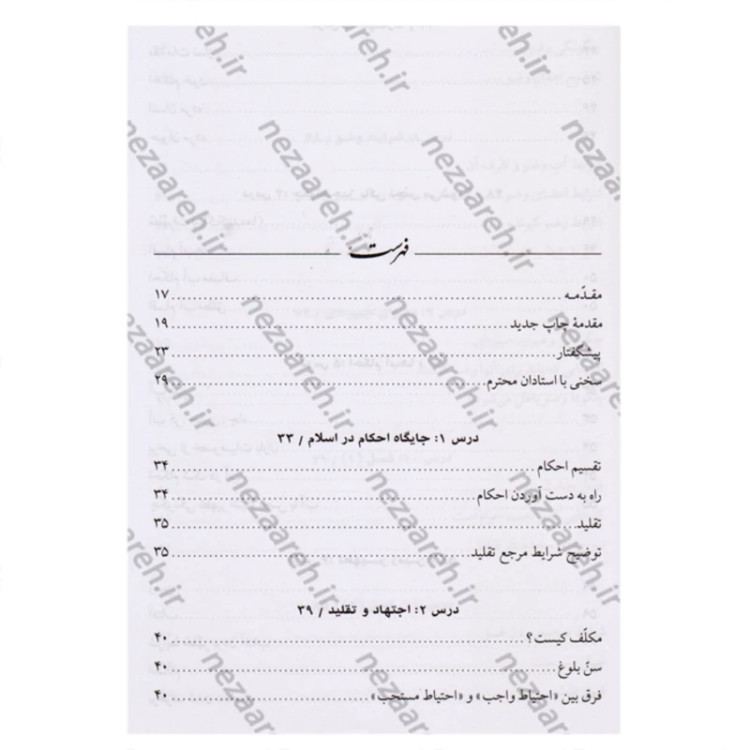 فهرست
مقدّمه ۱۷
مقدمهٔ چاپ جدید ۱۹
پیشگفتار ۲۳
سخنی با استادان محترم ۲۹
درس ۱: جایگاه احکام در اسلام / ۳۳
تقسیم احکام ۳۴
راه به دست آوردن احکام ۳۴
تقلید ۳۵
توضیح شرایط مرجع تقلید ۳۵
درس ۲: اجتهاد و تقلید / ۳۹
مکلّف کیست؟ ۴۰
سنّ بلوغ ۴۰
فرق بین «احتیاط واجب» و «احتیاط مستحب» ۴۰
nezaareh.ir